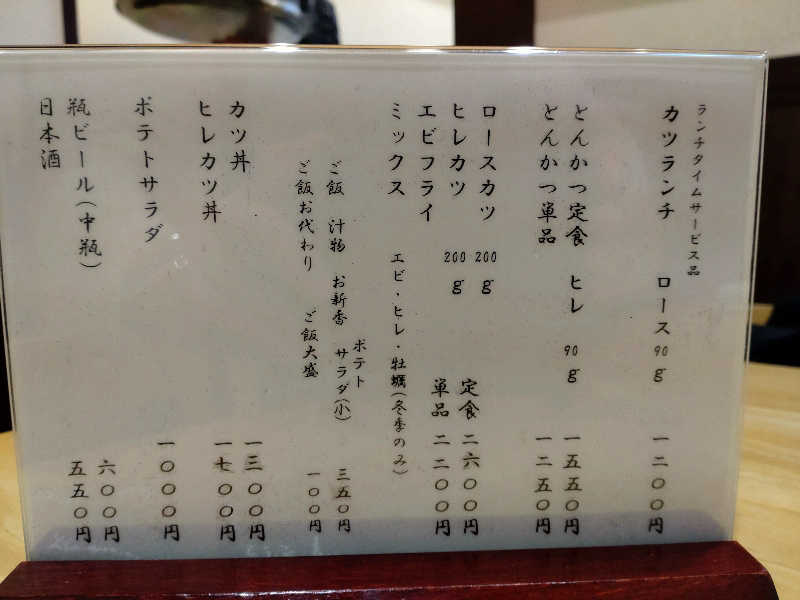 ランチタイムサービス品
カツランチ ロース90g 一二〇〇円
とんかつ定食 ヒレ 90g 一五五〇円
とんかつ単品 一二五〇円
ロースカツ 200g
ヒレカツ 200g
定食 二六〇〇円
単品 二二〇〇円
エビフライ
ミックス エビ・ヒレ・牡蠣(冬季のみ)
ポテト
ご飯 汁物 お新香 サラダ(小) 三五〇円
ご飯お代わり ご飯大盛 一〇〇円
カツ丼 一三〇〇円
ヒレカツ丼 一七〇〇円
ポテトサラダ 一〇〇〇円
瓶ビール(中瓶) 六〇〇円
日本酒 五五〇円